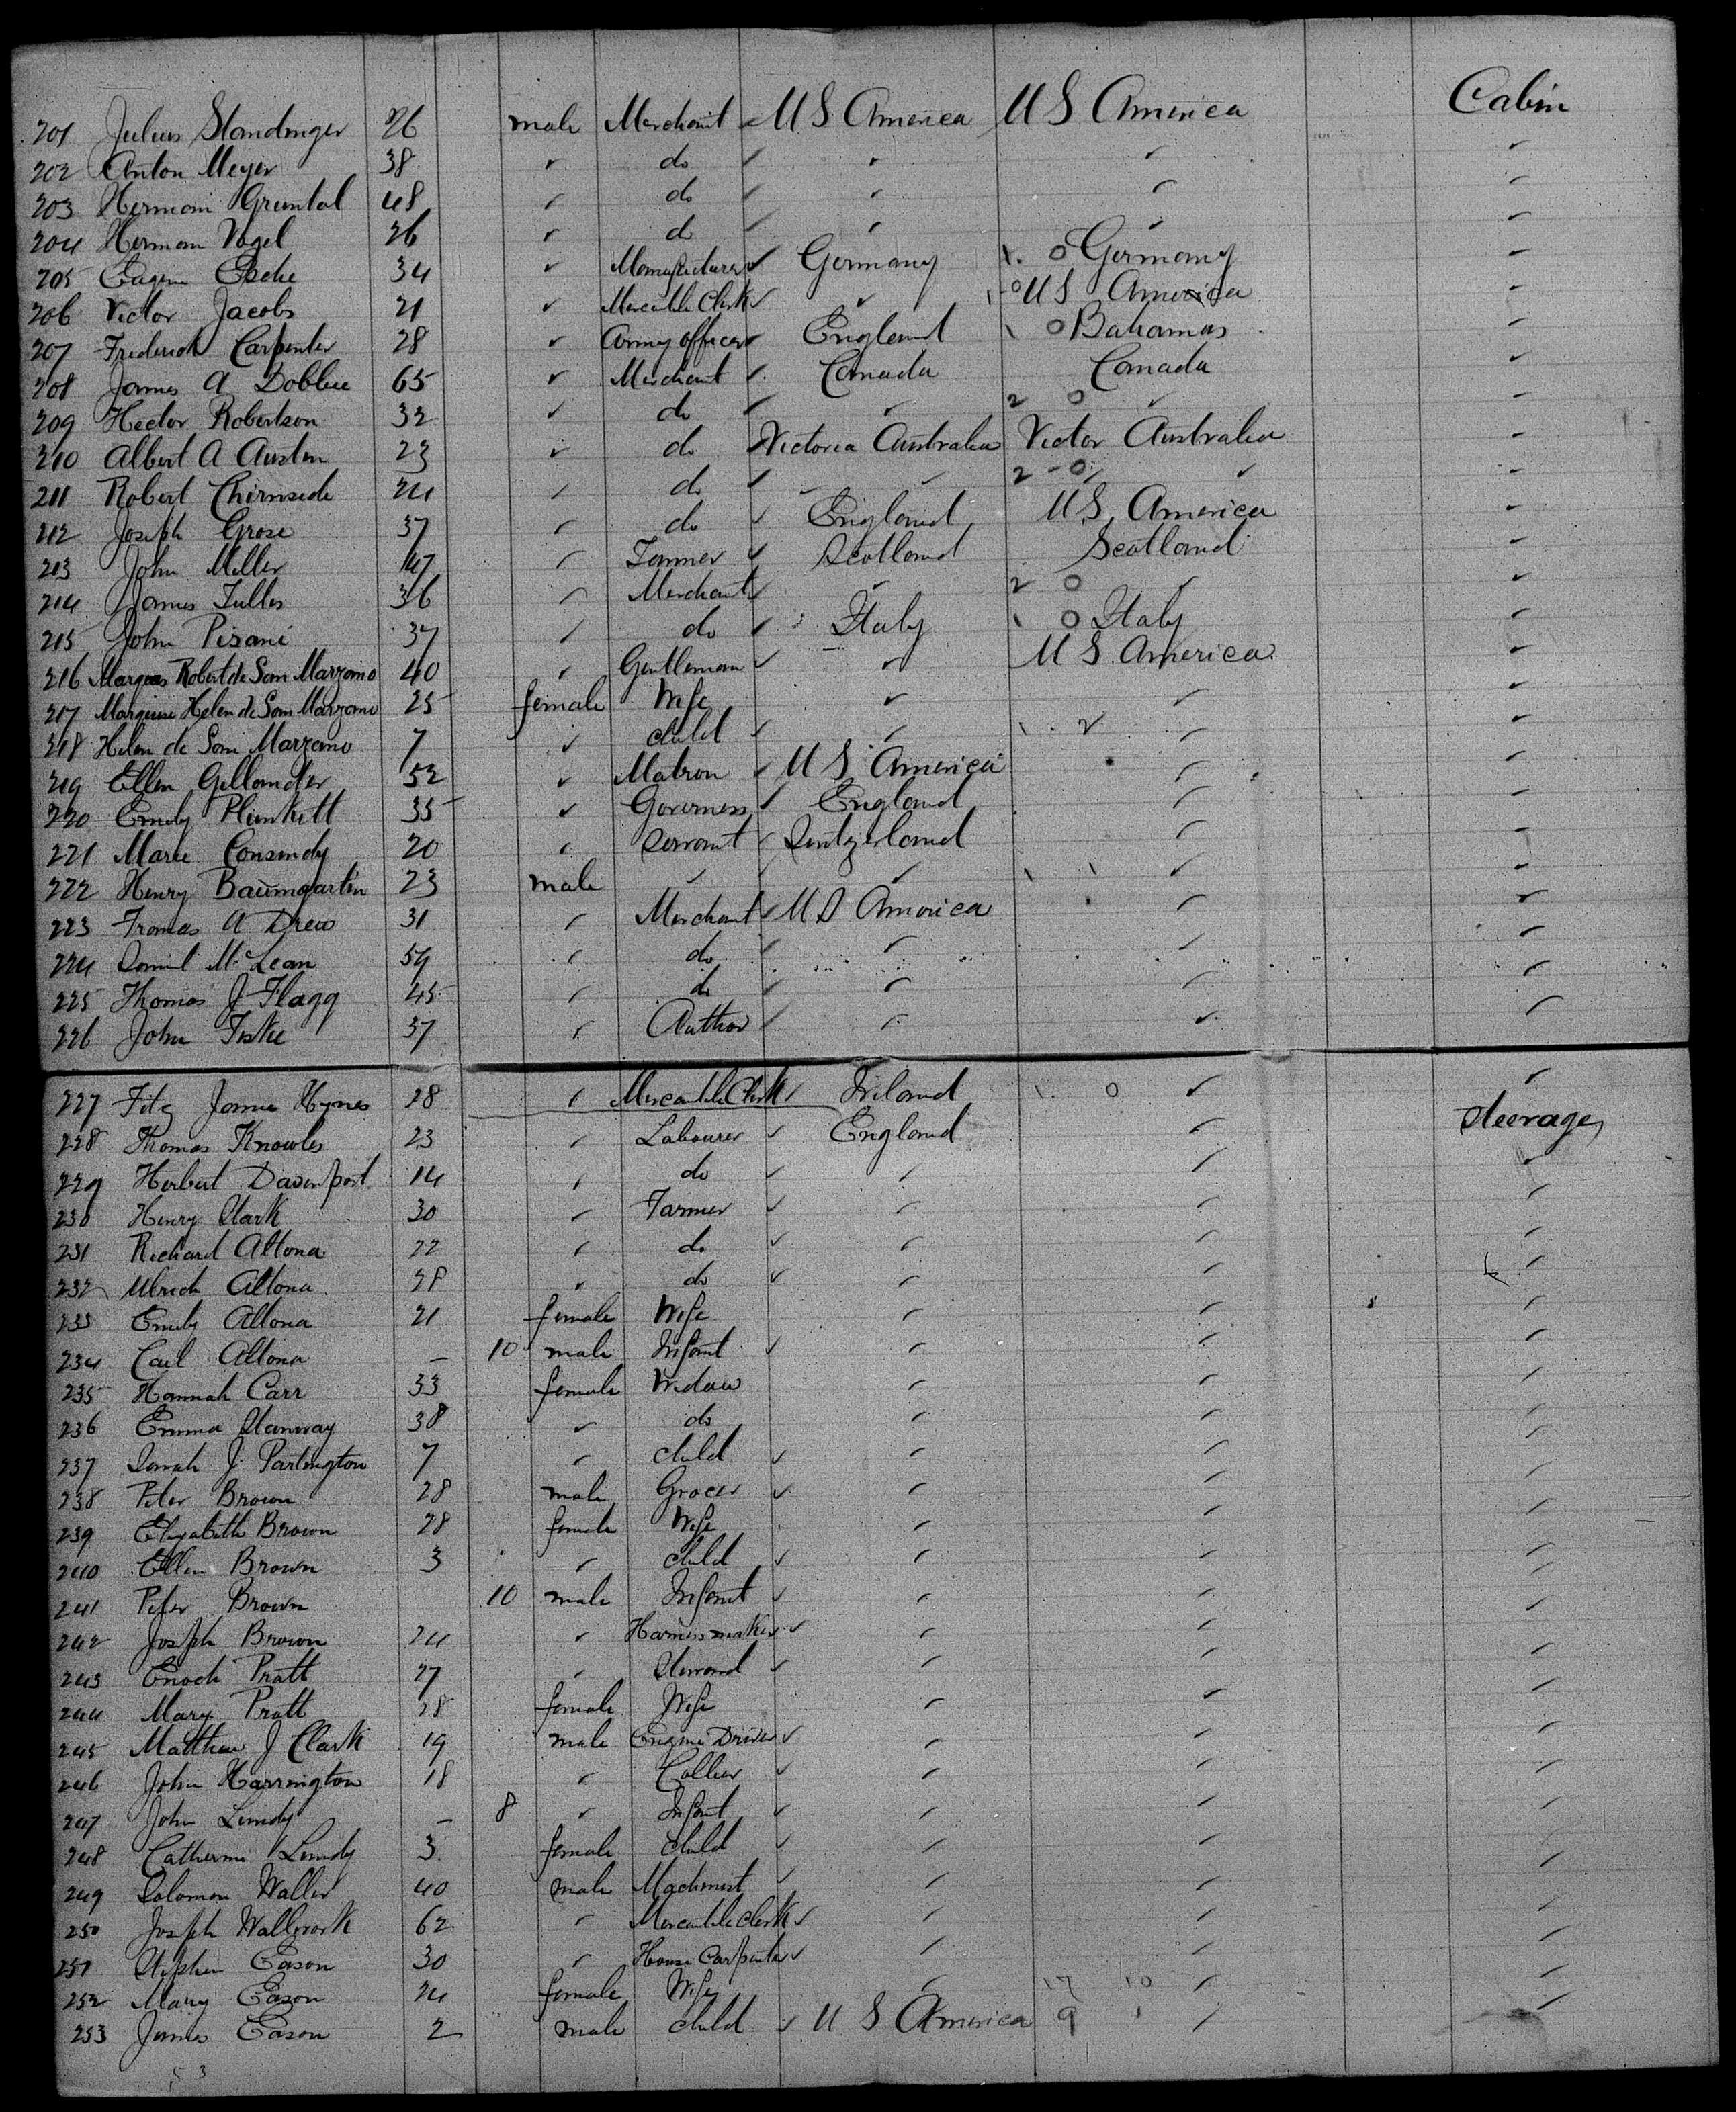 201 Julius Standinger 26 male Merchant ✓ U S America U S America Cabin
202 Anton Meyer 38 ✓ do ✓ ✓ ✓ ✓
203 Hermann Gruntal 48 ✓ do ✓ ✓ ✓ ✓
204 Herman Vogel 26 ✓ do ✓ ✓ ✓ ✓
205 Eugene 34 ✓ Manufacturer ✓ Germany 1. 0 Germany ✓
206 Victor Jacobs 21 ✓ Mercantile Clerk ✓ ✓ 1-0 U S America ✓
207 Frederick Carpenter 28 ✓ Army officer ✓ England 1 0 Bahamas ✓
208 James A Dobbie 65 ✓ Merchant ✓ Canada Canada ✓
209 Hector Robertson 32 ✓ do ✓ ✓ 2 0 ✓ ✓
210 Albert A Austin 23 ✓ do Victoria Australia Victor Australia ✓
211 Robert Chirnside 24 ✓ do ✓ ✓ 2-0 ✓ ✓
212 Joseph Grose 37 ✓ do ✓ England U S America ✓
213 John Miller 47 ✓ Farmer ✓ Scotland Scotland ✓
214 James Tulles 36 ✓ Merchant ✓ ✓ 2 0 ✓ ✓
215 John Pisani 37 ✓ do ✓ Italy 1 0 Italy ✓
216 Marques Robert de San Marzano 40 ✓ Gentleman ✓ ✓ U S America ✓
217 Marquise Helen de San Marzano 25 female Wife ✓ ✓ ✓
218 Helen de San Marzano 7 ✓ child ✓ ✓ 1. 2 ✓ ✓
219 Ellen Gillander 52 ✓ Matron ✓ U S America ✓ ✓
220 Emily Plunkett 35 ✓ Governess ✓ England ✓ ✓
221 Marie Consendy 20 ✓ Servant ✓ Switzerland ✓ ✓
222 Henry Baumgartin 23 male ✓ ✓ ✓ 1 1 ✓ ✓
223 Tromas A Drew 31 ✓ Merchant ✓ U S America ✓ ✓
224 Daniel McLean 59 ✓ do ✓ ✓ ✓ ✓
225 Thomas J Flagg 45 ✓ do ✓ ✓ ✓ ✓
226 John Fiske 37 ✓ Author ✓ ✓ ✓ ✓
227 Fitz James Hynes 28 ✓ Mercantile Clerk ✓ Ireland 1 0 ✓ ✓
228 Thomas Knowles 23 ✓ Labourer ✓ England ✓ Steerage
229 Herbert Davenport 14 ✓ do ✓ ✓ ✓ ✓
230 Henry Stark 30 ✓ Farmer ✓ ✓ ✓ ✓
231 Richard Altona 22 ✓ do ✓ ✓ ✓ ✓
232 Ulrich Altona 28 ✓ do ✓ ✓ ✓ ✓
233 Emily Altona 21 female Wife ✓ ✓ ✓
234 Carl Altona – 10 male Infant ✓ ✓ ✓ ✓
235 Hannah Carr 33 female Widow ✓ ✓ ✓
236 Emma Stanway 38 ✓ do ✓ ✓ ✓
237 Sarah J. Partington 7 ✓ child ✓ ✓ ✓ ✓
238 Peter Brown 28 male Grocer ✓ ✓ ✓ ✓
239 Elizabeth Brown 28 female Wife ✓ ✓ ✓
240 Ellen Brown 3 ✓ child ✓ ✓ ✓ ✓
241 Peter Brown 10 male Infant ✓ ✓ ✓ ✓
242 Joseph Brown 24 ✓ Harness maker ✓ ✓ ✓ ✓
243 Enoch Pratt 27 ✓ Steward ✓ ✓ ✓ ✓
244 Mary Pratt 28 female Wife ✓ ✓ ✓
245 Matthew J Clark 19 male Engine Driver ✓ ✓ ✓ ✓
246 John Harrington 18 ✓ Collier ✓ ✓ ✓ ✓
247 John Lundy – 8 ✓ Infant ✓ ✓ ✓ ✓
248 Catherine Lundy 3 female child ✓ ✓ ✓ ✓
249 Solomon Waller 40 male Machinist ✓ ✓ ✓ ✓
250 Joseph Wallwork 62 ✓ Mercantile clerk ✓ ✓ ✓ ✓
251 Stephen Eason 30 ✓ House Carpenter ✓ ✓ ✓ ✓
252 Mary Eason 24 female Wife ✓ 17 10 ✓ ✓
253 James Eason 2 male child ✓ U S America 9 1 ✓ ✓
53